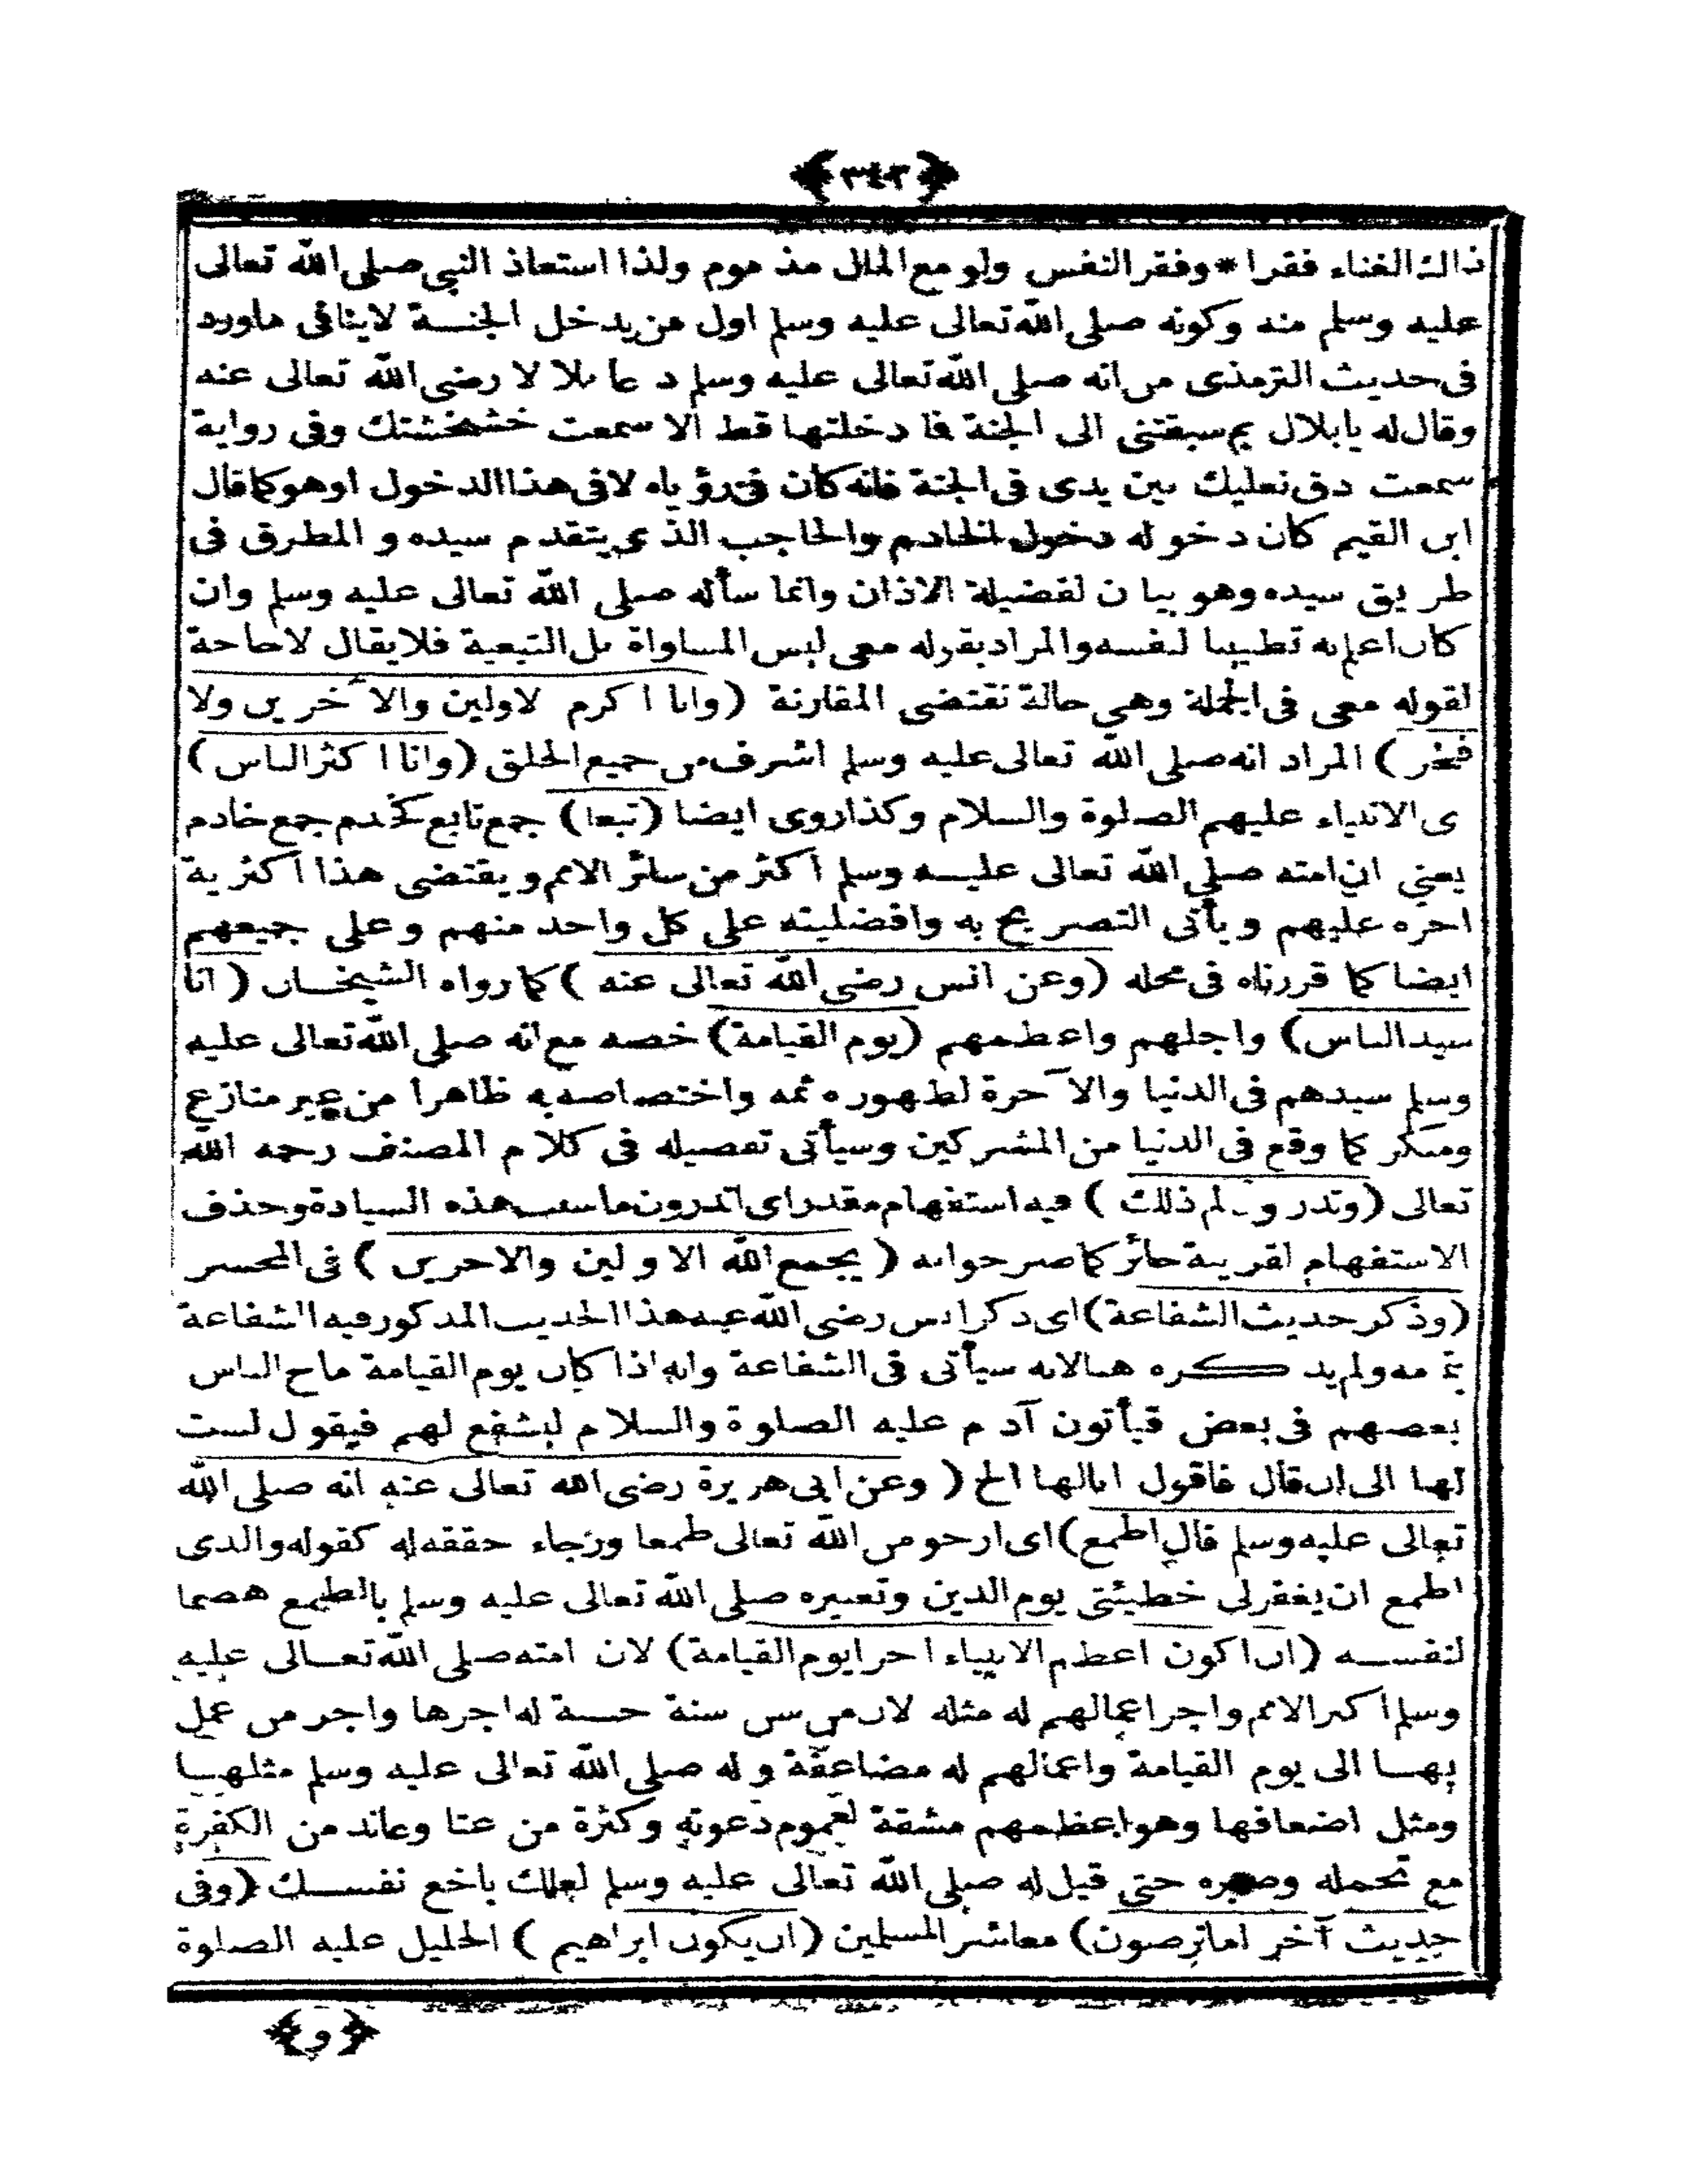 ﴿٣٤٣﴾
ذاك الغناء فقرا * وفقر النفس ولو مع المال مذموم ولذا استعاذ النبي صلى الله تعالى
عليه وسلم منه وكونه صلى الله تعالى عليه وسلم اول من يدخل الجنة لاينافى ماورد
فى حديث الترمذى من انه صلى الله تعالى عليه وسلم دعا بلالا رضى الله تعالى عنه
وقال له يابلال بم سبقتنى الى الجنة فما دخلتها قط الا سمعت خشخشتك وفى رواية
سمعت دق نعليك بين يدى فى الجنة فانه كان فى رؤياه لا فى هذا الدخول اوهو كما قال
ابن القيم كان دخوله دخول الخادم والحاجب الذى يتقدم سيده و المطرق فى
طريق سيده وهو بيان لفضيلة الاذان وانما سأله صلى الله تعالى عليه وسلم وان
كان اعلم به تطييبا لنفسه والمراد بقوله معى ليس المساواة بل التبعية فلا يقال لاحاجة
لقوله معى فى الجملة وهى حالة تقتضى المقارنة (وانا اكرم لاولين والآخرين ولا
فخر) المراد انه صلى الله تعالى عليه وسلم اشرف من جميع الخلق (وانا اكثر الناس)
ى الانبياء عليهم الصلوة والسلام وكذا روى ايضا (تبعا) جمع تابع كخدم جمع خادم
يعنى ان امته صلى الله تعالى عليه وسلم اكثر من سائر الامم ويقتضى هذا اكثرية
اجره عليهم ويأتى التصريح به وافضليته على كل واحد منهم وعلى جميعهم
ايضا كما قررناه فى محله (وعن انس رضى الله تعالى عنه) كما رواه الشيخان (انا
سيد الناس) واجلهم واعظمهم (يوم القيامة) خصه مع انه صلى الله تعالى عليه
وسلم سيدهم فى الدنيا والآخرة لظهوره ثمه واختصاصه به ظاهرا من غير منازع
ومنكر كما وقع فى الدنيا من المشركين وسيأتى تفصيله فى كلام المصنف رحمه الله
تعالى (وتدرون لم ذلك) فيه استفهام مقدر اى اتدرون ما سبب هذه السيادة وحذف
الاستفهام لقرينة جائز كما صرحوا به (يجمع الله الاولين والاخرين) فى المحشر
(وذكر حديث الشفاعة) اى ذكر انس رضى الله عنه هذا الحديث المذكور فيه الشفاعة
بتمامه ولم يذكره هنا لانه سيأتى فى الشفاعة وانه اذا كان يوم القيامة ماج الناس
بعضهم فى بعض فيأتون آدم عليه الصلوة والسلام ليشفع لهم فيقول لست
لها الى ان قال فاقول انا لها الخ (وعن ابى هريرة رضى الله تعالى عنه انه صلى الله
تعالى عليه وسلم قال اطمع) اى ارجو من الله تعالى طمعا ورجاء حققه له كقوله والذى
اطمع ان يغفر لى خطيئتى يوم الدين وتعبيره صلى الله تعالى عليه وسلم بالطمع هضما
لنفسه (ان اكون اعظم الانبياء اجرا يوم القيامة) لان امته صلى الله تعالى عليه
وسلم اكبر الامم واجر اعمالهم له مثله لان من سن سنة حسنة له اجرها واجر من عمل
بها الى يوم القيامة واعمالهم له مضاعفة وله صلى الله تعالى عليه وسلم مثلها
ومثل اضعافها وهو اعظمهم مشقة لعموم دعوته وكثرة من عتا وعاند من الكفرة
مع تحمله وصبره حتى قيل له صلى الله تعالى عليه وسلم لعلك باخع نفسك (وفى
حديث آخر اما ترضون) معاشر المسلمين (ان يكون ابراهيم) الخليل عليه الصلوة
﴿و﴾